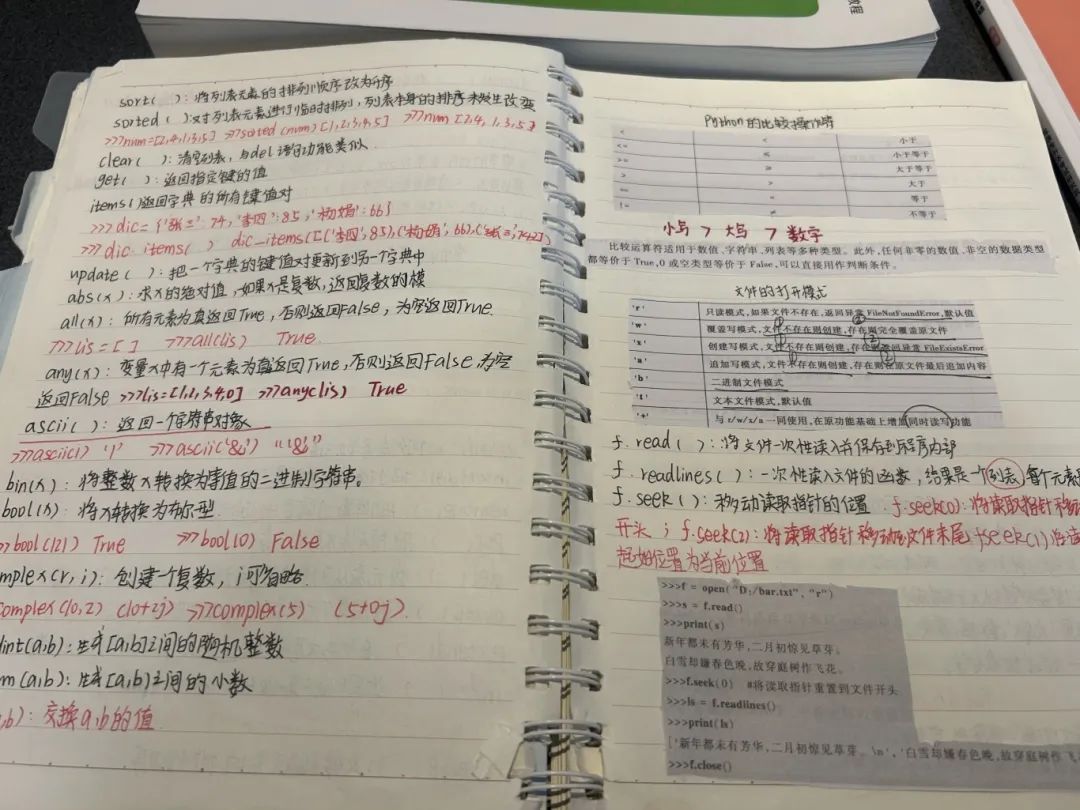 教程
sort( ): 将列表元素的排列顺序改为升序
sorted( ): 对列表元素进行临时排列,列表本身的排序未发生改变
>>>num=[2,4,1,3,5] >>>sorted(num)[1,2,3,4,5] >>>num [2,4,1,3,5]
clear( ): 清空列表,与del语句功能类似
get( ): 返回指定键的值
items( )返回字典的所有键值对
>>> dic={'张三':74,'李四':85,'杨娟':66}
>>> dic.items( ) dic_items([('李四',85),('杨娟',66),('张三',74)])
update( ): 把一个字典的键值对更新到另一个字典中
abs(x): 求x的绝对值,如果x是复数,返回复数的模
all(x): 所有元素为真返回True,否则返回False,为空返回True.
>>>lis=[ ] >>>all(lis) True
any(x): 变量x中有一个元素为真返回True,否则返回False,为空
返回False >>>lis=[1,2,3,4,0] >>>any(lis) True
ascii( ): 返回一个字符串对象
>>>ascii(1) '1' >>>ascii('&') "'&'"
bin(x): 将整数x转换为等值的二进制字符串。
bool(x): 将x转换为布尔型.
>>bool(12) True >>>bool(0) False
mplex(r,i): 创建一个复数,i可省略
complex(10,2) (10+2j) >>>complex(5) (5+0j)
dint(a,b): 生成[a,b]之间的随机整数
m(a,b): 生成[a,b]之间的小数
,b): 交换a,b的值
Python的比较操作符
< < 小于
<= ≤ 小于等于
>= ≥ 大于等于
> > 大于
== = 等于
!= ≠ 不等于
小写 > 大写 > 数字
比较运算符适用于数值、字符串、列表等多种类型。此外,任何非零的数值、非空的数据类型
都等价于 True,0 或空类型等价于 False,可以直接用作判断条件。
文件的打开模式
'r' 只读模式,如果文件不存在,返回异常 FileNotFoundError,默认值
'w' 覆盖写模式,文件不存在则创建,存在则完全覆盖原文件
'x' 创建写模式,文件不存在则创建,存在则返回异常 FileExistsError
'a' 追加写模式,文件不存在则创建,存在则在原文件最后追加内容
'b' 二进制文件模式
't' 文本文件模式,默认值
'+' 与 r/w/x/a 一同使用,在原功能基础上增加同时读写功能
f.read( ): 将文件一次性读入并保存到程序内部
f.readlines( ): 一次性读入文件的函数,结果是一个列表,每个元素
f.seek( ): 移动读取指针的位置 f.seek(0): 将读取指针移动
开头; f.seek(2): 将读取指针移动到文件末尾 f.seek(1)将读
起始位置为当前位置
>>>f = open("D:/bar.txt", "r")
>>>s = f.read()
>>>print(s)
新年都未有芳华,二月初惊见草芽。
白雪却嫌春色晚,故穿庭树作飞花。
>>>f.seek(0) #将读取指针重置到文件开头
>>>ls = f.readlines()
>>>print(ls)
['新年都未有芳华,二月初惊见草芽。\n', '白雪却嫌春色晚,故穿庭树作飞
>>>f.close()